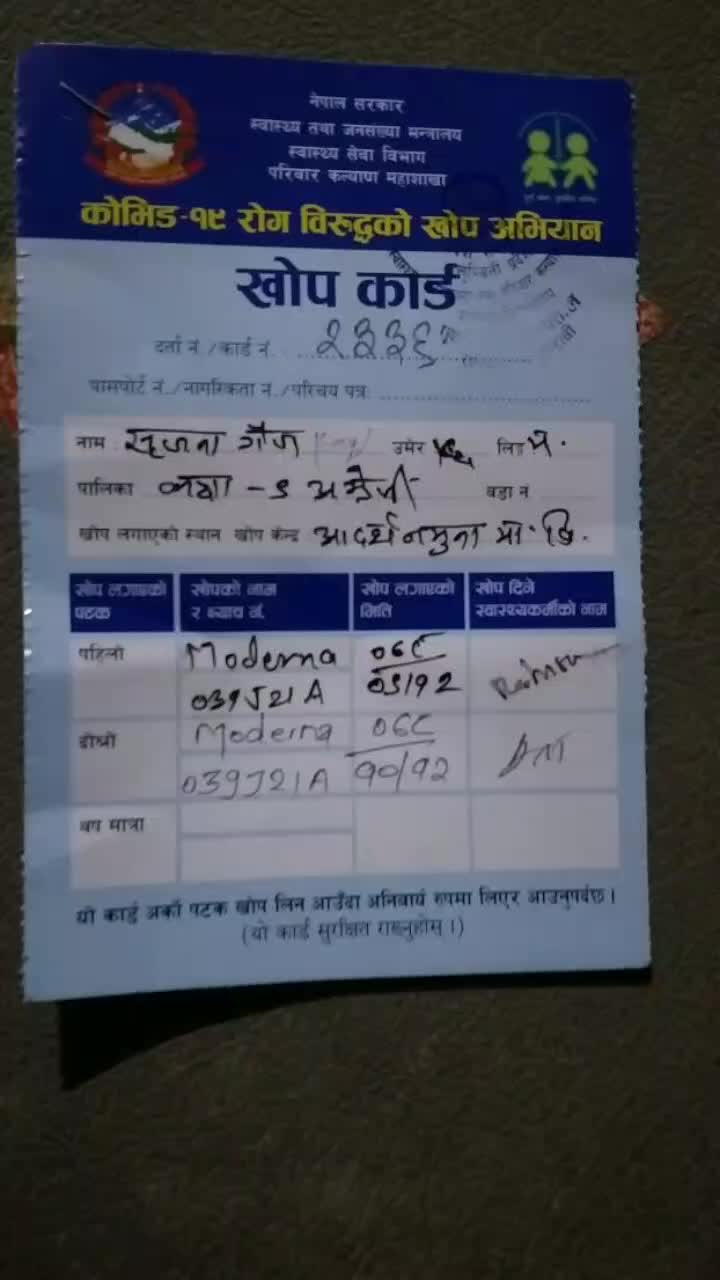 नेपाल सरकार
स्वास्थ्य तथा जनसंख्या मन्त्रालय
स्वास्थ्य सेवा विभाग
परिवार कल्याण महाशाखा
कोभिड-१९ रोग विरुद्धको खोप अभियान
खोप कार्ड
दर्ता नं./कार्ड नं. २३३६
पासपोर्ट नं./नागरिकता नं./परिचय पत्र:
नाम: सृजना गैज उमेर लिङ्ग म.
पालिका कक्षा - ९ अंग्रेजी वडा नं
खोप लगाएको स्थान खोप केन्द्र आदर्श नमुना मा. वि.
खोप लगाएको पटक खोपको नाम र ब्याच नं. खोप लगाएको मिति खोप दिने स्वास्थ्यकर्मीको नाम
पहिलो Moderna
039J21A
दोश्रो Moderna
039J21A १०/१२
थप मात्रा
यो कार्ड अर्को पटक खोप लिन आउँदा अनिवार्य रुपमा लिएर आउनुपर्दछ।
(यो कार्ड सुरक्षित राख्नुहोस्।)